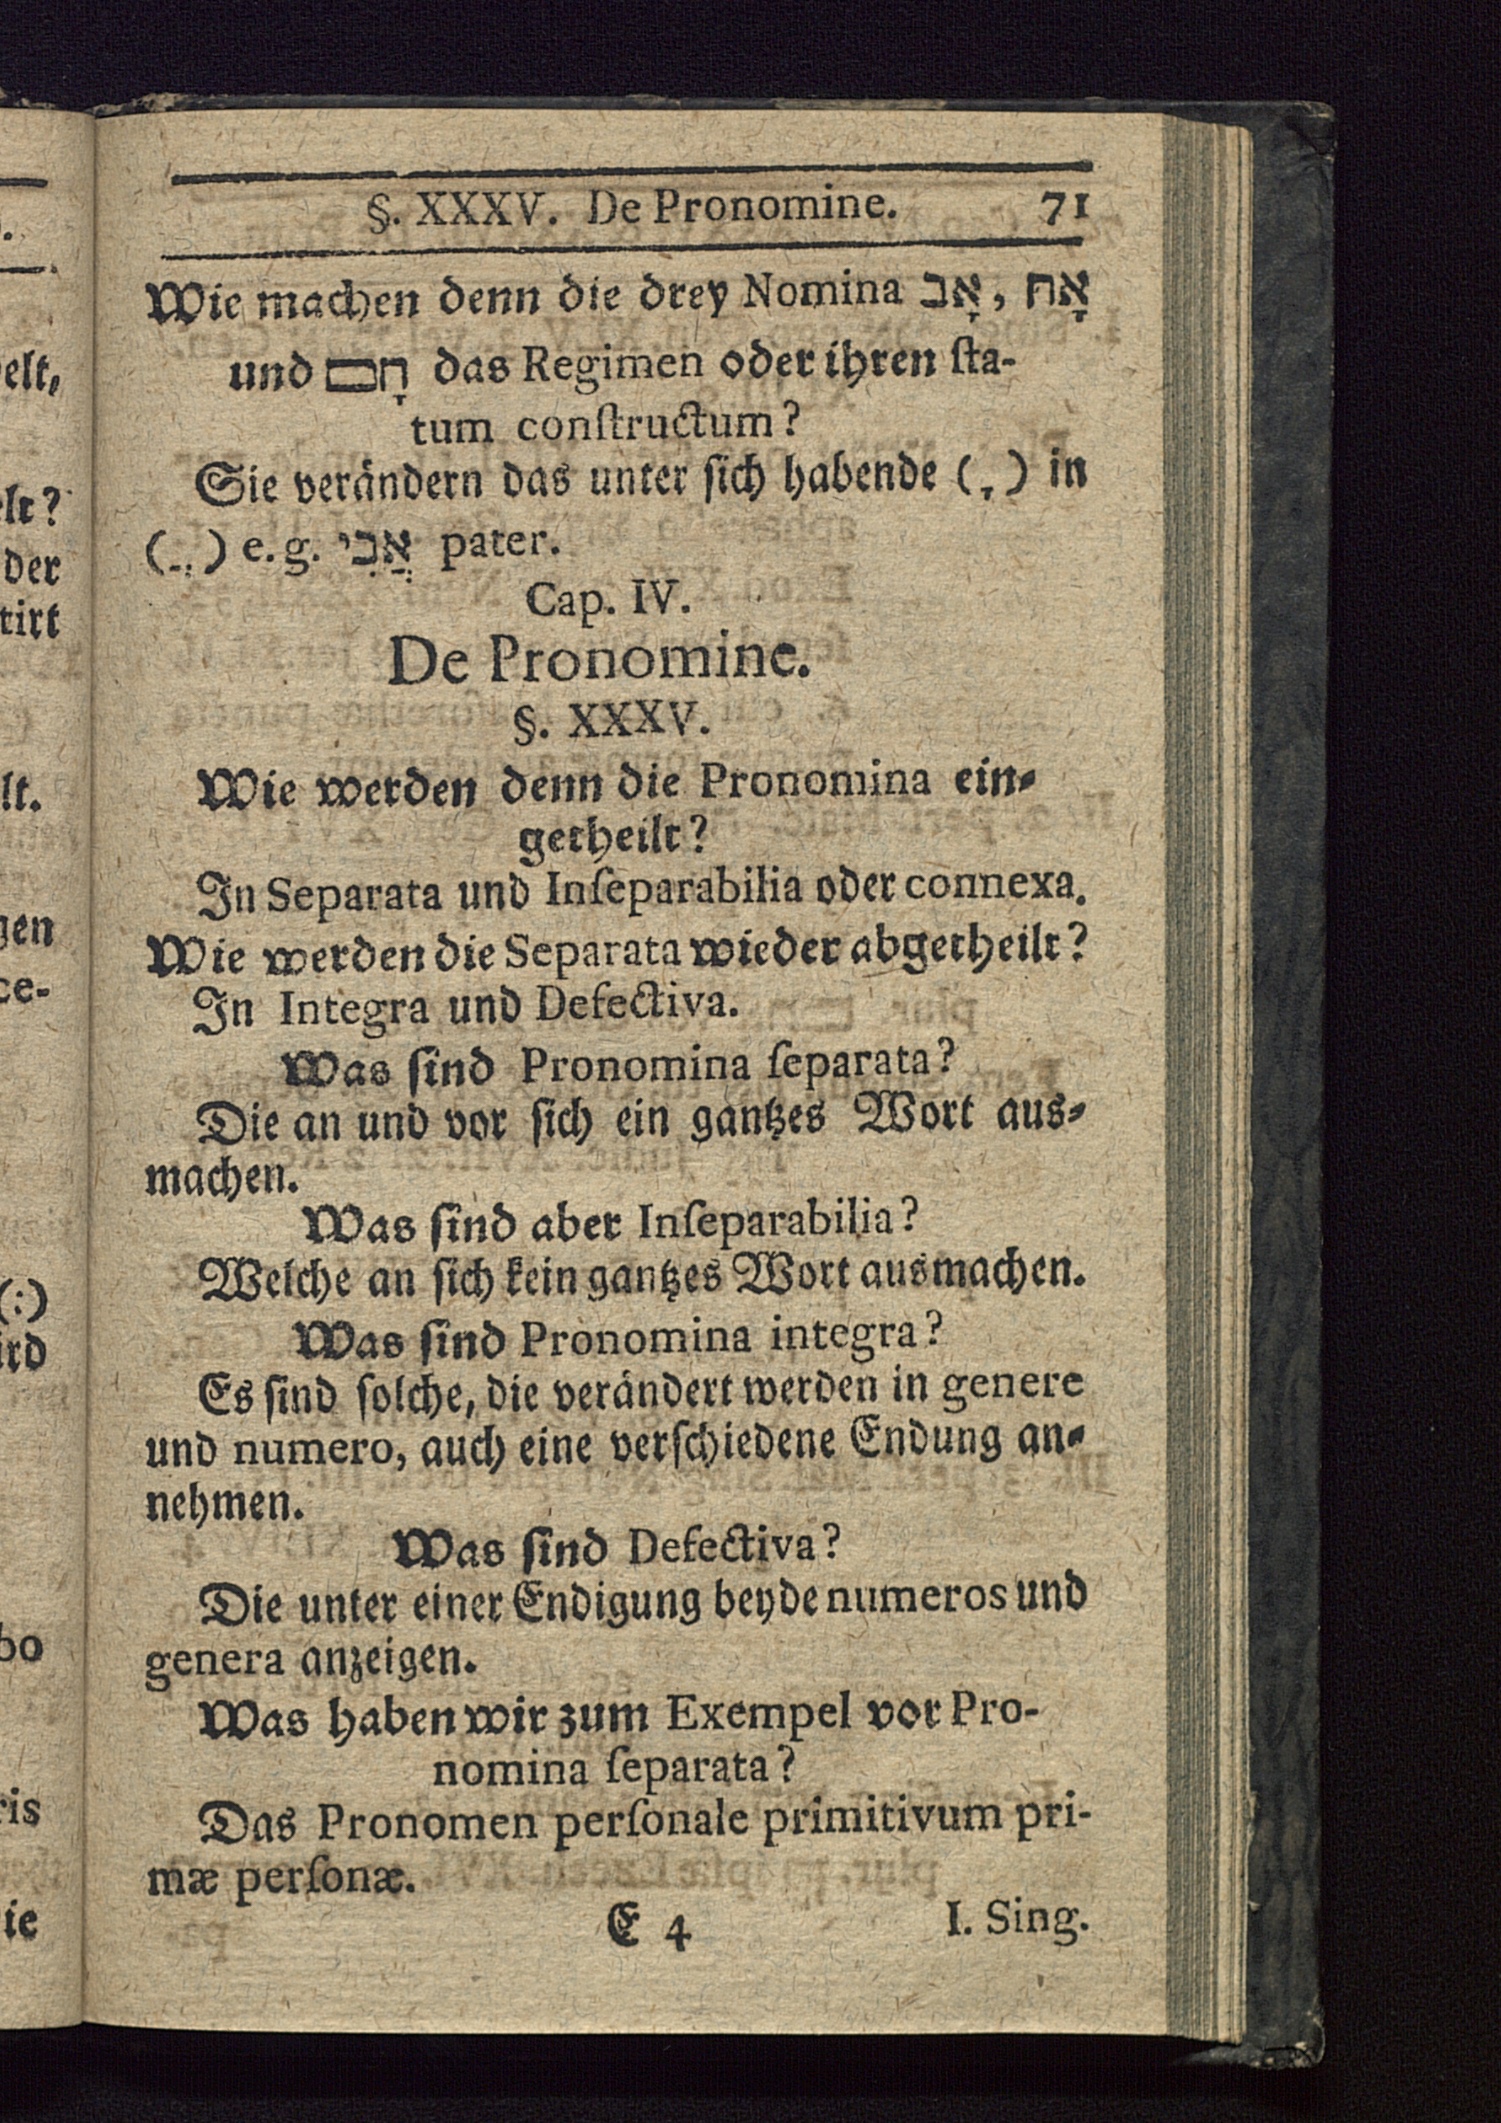 §. XXXV. De Pronomine. 71
Wie machen denn die drey Nomina אָב, אָח
und חָם das Regimen oder ihren ſta-
tum conſtructum?
Sie verändern das unter ſich habende (ָ) in
(ֲ) e. g. אֲבִי pater.
Cap. IV.
De Pronomine.
§. XXXV.
Wie werden denn die Pronomina ein-
getheilt?
In Separata und Inſeparabilia oder connexa.
Wie werden die Separata wieder abgetheilt?
In Integra und Defectiva.
Was ſind Pronomina ſeparata?
Die an und vor ſich ein gantzes Wort aus-
machen.
Was ſind aber Inſeparabilia?
Welche an ſich kein gantzes Wort ausmachen.
Was ſind Pronomina integra?
Es ſind ſolche, die verändert werden in genere
und numero, auch eine verſchiedene Endung an-
nehmen.
Was ſind Defectiva?
Die unter einer Endigung beyde numeros und
genera anzeigen.
Was haben wir zum Exempel vor Pro-
nomina ſeparata?
Das Pronomen perſonale primitivum pri-
mæ perſonæ.
E 4 I. Sing.